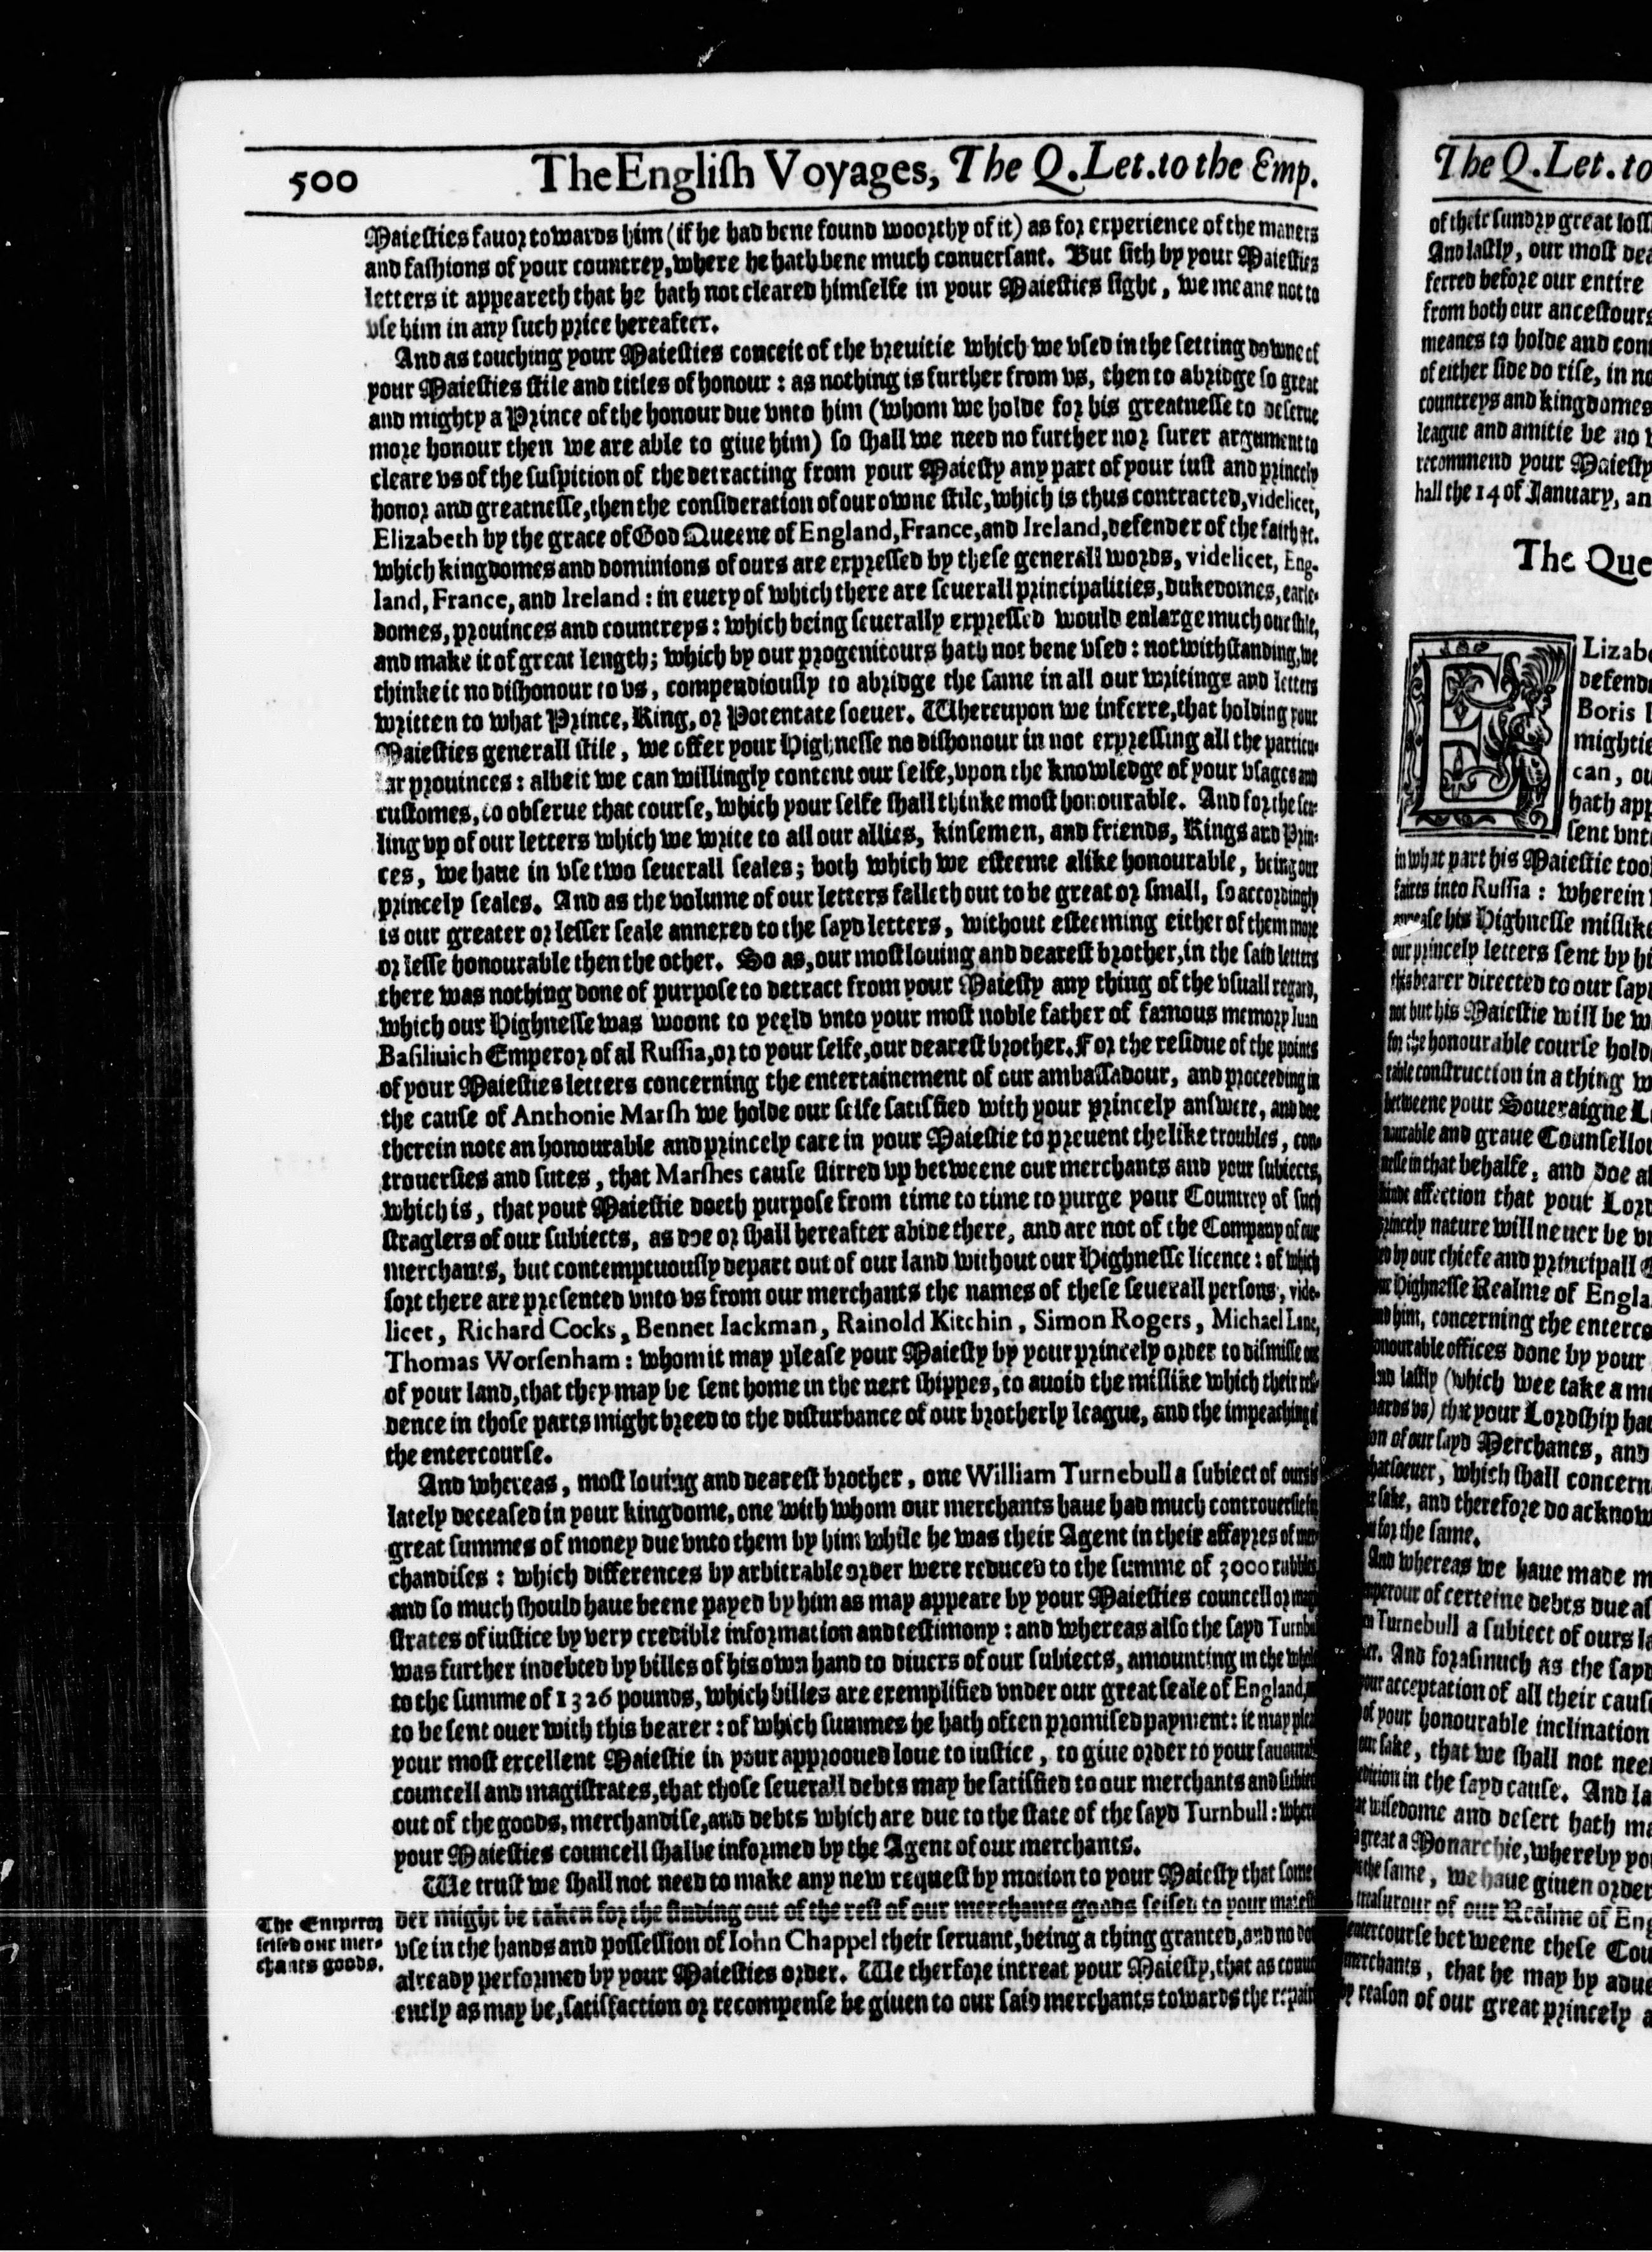 500 The Engliſh Voyages, The Q.Let.to the Emp.
Maieſties fauor towards him (if he had bene found woorthy of it) as for experience of the maners
and faſhions of your countrey, where he hath bene much conuerſant. But ſith by your Maieſties
letters it appeareth that he hath not cleared himſelfe in your Maieſties ſight, we meane not to
vſe him in any ſuch price hereafter.
And as touching your Maieſties conceit of the breuitie which we vſed in the ſetting downe of
your Maieſties ſtile and titles of honour: as nothing is further from vs, then to abridge ſo great
and mighty a Prince of the honour due vnto him (whom we holde for his greatneſſe to deſerue
more honour then we are able to giue him) ſo ſhall we need no further nor ſurer argument to
cleare vs of the ſuſpition of the detracting from your Maieſty any part of your iuſt and princely
honor and greatneſſe, then the conſideration of our owne ſtile, which is thus contracted, videlicet,
Elizabeth by the grace of God Queene of England, France, and Ireland, defender of the faith &c.
which kingdomes and dominions of ours are expreſſed by theſe generall words, videlicet, Eng-
land, France, and Ireland: in euery of which there are ſeuerall principalities, dukedomes, earle-
domes, prouinces and countreys: which being ſeuerally expreſſed would enlarge much our ſtile,
and make it of great length; which by our progenitours hath not bene vſed: notwithſtanding, we
thinke it no diſhonour to vs, compendiouſly to abridge the ſame in all our writings and letters
written to what Prince, King, or Potentate ſoeuer. Whereupon we inferre, that holding your
Maieſties generall ſtile, we offer your Highneſſe no diſhonour in not expreſſing all the particu-
lar prouinces: albeit we can willingly content our ſelfe, vpon the knowledge of your vſages and
cuſtomes, to obſerue that courſe, which your ſelfe ſhall thinke moſt honourable. And for the ſea-
ling vp of our letters which we write to all our allies, kinſemen, and friends, Kings and Prin-
ces, we haue in vſe two ſeuerall ſeales; both which we eſteeme alike honourable, being our
princely ſeales. And as the volume of our letters falleth out to be great or ſmall, ſo accordingly
is our greater or leſſer ſeale annexed to the ſayd letters, without eſteeming either of them more
or leſſe honourable then the other. So as, our moſt louing and deareſt brother, in the ſaid letters
there was nothing done of purpoſe to detract from your Maieſty any thing of the vſuall regard,
which our Highneſſe was woont to yeeld vnto your moſt noble father of famous memory Iuan
Baſiliuich Emperor of al Ruſſia, or to your ſelfe, our deareſt brother. For the reſidue of the points
of your Maieſties letters concerning the entertainement of our ambaſſadour, and proceeding in
the cauſe of Anthonie Marſh we holde our ſelfe ſatiſfied with your princely anſwere, and doe
therein note an honourable and princely care in your Maieſtie to preuent the like troubles, con-
trouerſies and ſutes, that Marſhes cauſe ſtirred vp betweene our merchants and your ſubiects,
which is, that your Maieſtie doeth purpoſe from time to time to purge your Countrey of ſuch
ſtraglers of our ſubiects, as doe or ſhall hereafter abide there, and are not of the Company of our
merchants, but contemptuouſly depart out of our land without our Highneſſe licence: of which
ſort there are preſented vnto vs from our merchants the names of theſe ſeuerall perſons, vide-
licet, Richard Cocks, Bennet Iackman, Rainold Kitchin, Simon Rogers, Michael Lane,
Thomas Worſenham: whom it may pleaſe your Maieſty by your princely order to diſmiſſe out
of your land, that they may be ſent home in the next ſhippes, to auoid the miſlike which their reſi-
dence in thoſe parts might breed to the diſturbance of our brotherly league, and the impeaching of
the entercourſe.
And whereas, moſt louing and deareſt brother, one William Turnebull a ſubiect of ours is
lately deceaſed in your kingdome, one with whom our merchants haue had much controuerſie for
great ſummes of money due vnto them by him while he was their Agent in their affayres of mer-
chandiſes: which differences by arbitrable order were reduced to the ſumme of 3000 rubbles
and ſo much ſhould haue beene payed by him as may appeare by your Maieſties councell or magi-
ſtrates of iuſtice by very credible information and teſtimony: and whereas alſo the ſayd Turnbu
was further indebted by billes of his own hand to diuers of our ſubiects, amounting in the whole
to the ſumme of 1326 pounds, which billes are exemplified vnder our great ſeale of England,
to be ſent ouer with this bearer: of which ſummes he hath often promiſed payment: it may plea
your moſt excellent Maieſtie in your approoued loue to iuſtice, to giue order to your fauourab
councell and magiſtrates, that thoſe ſeuerall debts may be ſatiſfied to our merchants and ſubiec
out of the goods, merchandiſe, and debts which are due to the ſtate of the ſayd Turnbull: wher
your Maieſties councell ſhalbe informed by the Agent of our merchants.
We truſt we ſhall not need to make any new requeſt by motion to your Maieſty that ſome
der might be taken for the finding out of the reſt of our merchants goods ſeiſed to your maieſt
The Emperor
ſeiſed our mer-
chants goods.
vſe in the hands and poſſeſſion of Iohn Chappel their ſeruant, being a thing granted, and no do
already performed by your Maieſties order. We therfore intreat your Maieſty, that as conue
ently as may be, ſatiſfaction or recompenſe be giuen to our ſaid merchants towards the repair
The Q.Let.to
of their ſundry great loſſ
And laſtly, our moſt dea
ferred before our entire
from both our anceſtours
meanes to holde and cont
of either ſide do riſe, in no
countreys and kingdomes
league and amitie be no
recommend your Maieſty
hall the 14 of Ianuary, an
The Que
Lizabe
defende
Boris
mightie
can, ou
hath app
ſent vnt
in what part his Maieſtie took
faires into Ruſſia: wherein
his Highneſſe miſlike
our princely letters ſent by hi
this bearer directed to our ſayd
not but his Maieſtie will be w
for the honourable courſe hold
table conſtruction in a thing w
betweene your Soueraigne L
nourable and graue Counſellou
neſſe in that behalfe, and doe al
affection that your Lord
princely nature will neuer be v
ed by our chiefe and principall
our Highneſſe Realme of Engla
and him, concerning the enterco
honourable offices done by your
and laſtly (which wee take a mo
wards vs) that your Lordſhip had
on of our ſayd Merchants, and
hatſoeuer, which ſhall concern
ſake, and therefore do acknow
for the ſame.
And whereas we haue made m
mperour of certeine debts due aſ
Turnebull a ſubiect of ours la
And foraſmuch as the ſayd
your acceptation of all their cauſe
of your honourable inclination
our ſake, that we ſhall not need
in the ſayd cauſe. And la
wiſedome and deſert hath ma
great a Monarchie, whereby yo
the ſame, we haue giuen order
treaſurour of our Realme of Eng
entercourſe betweene theſe Cou
merchants, that he may by adue
by reaſon of our great princely a